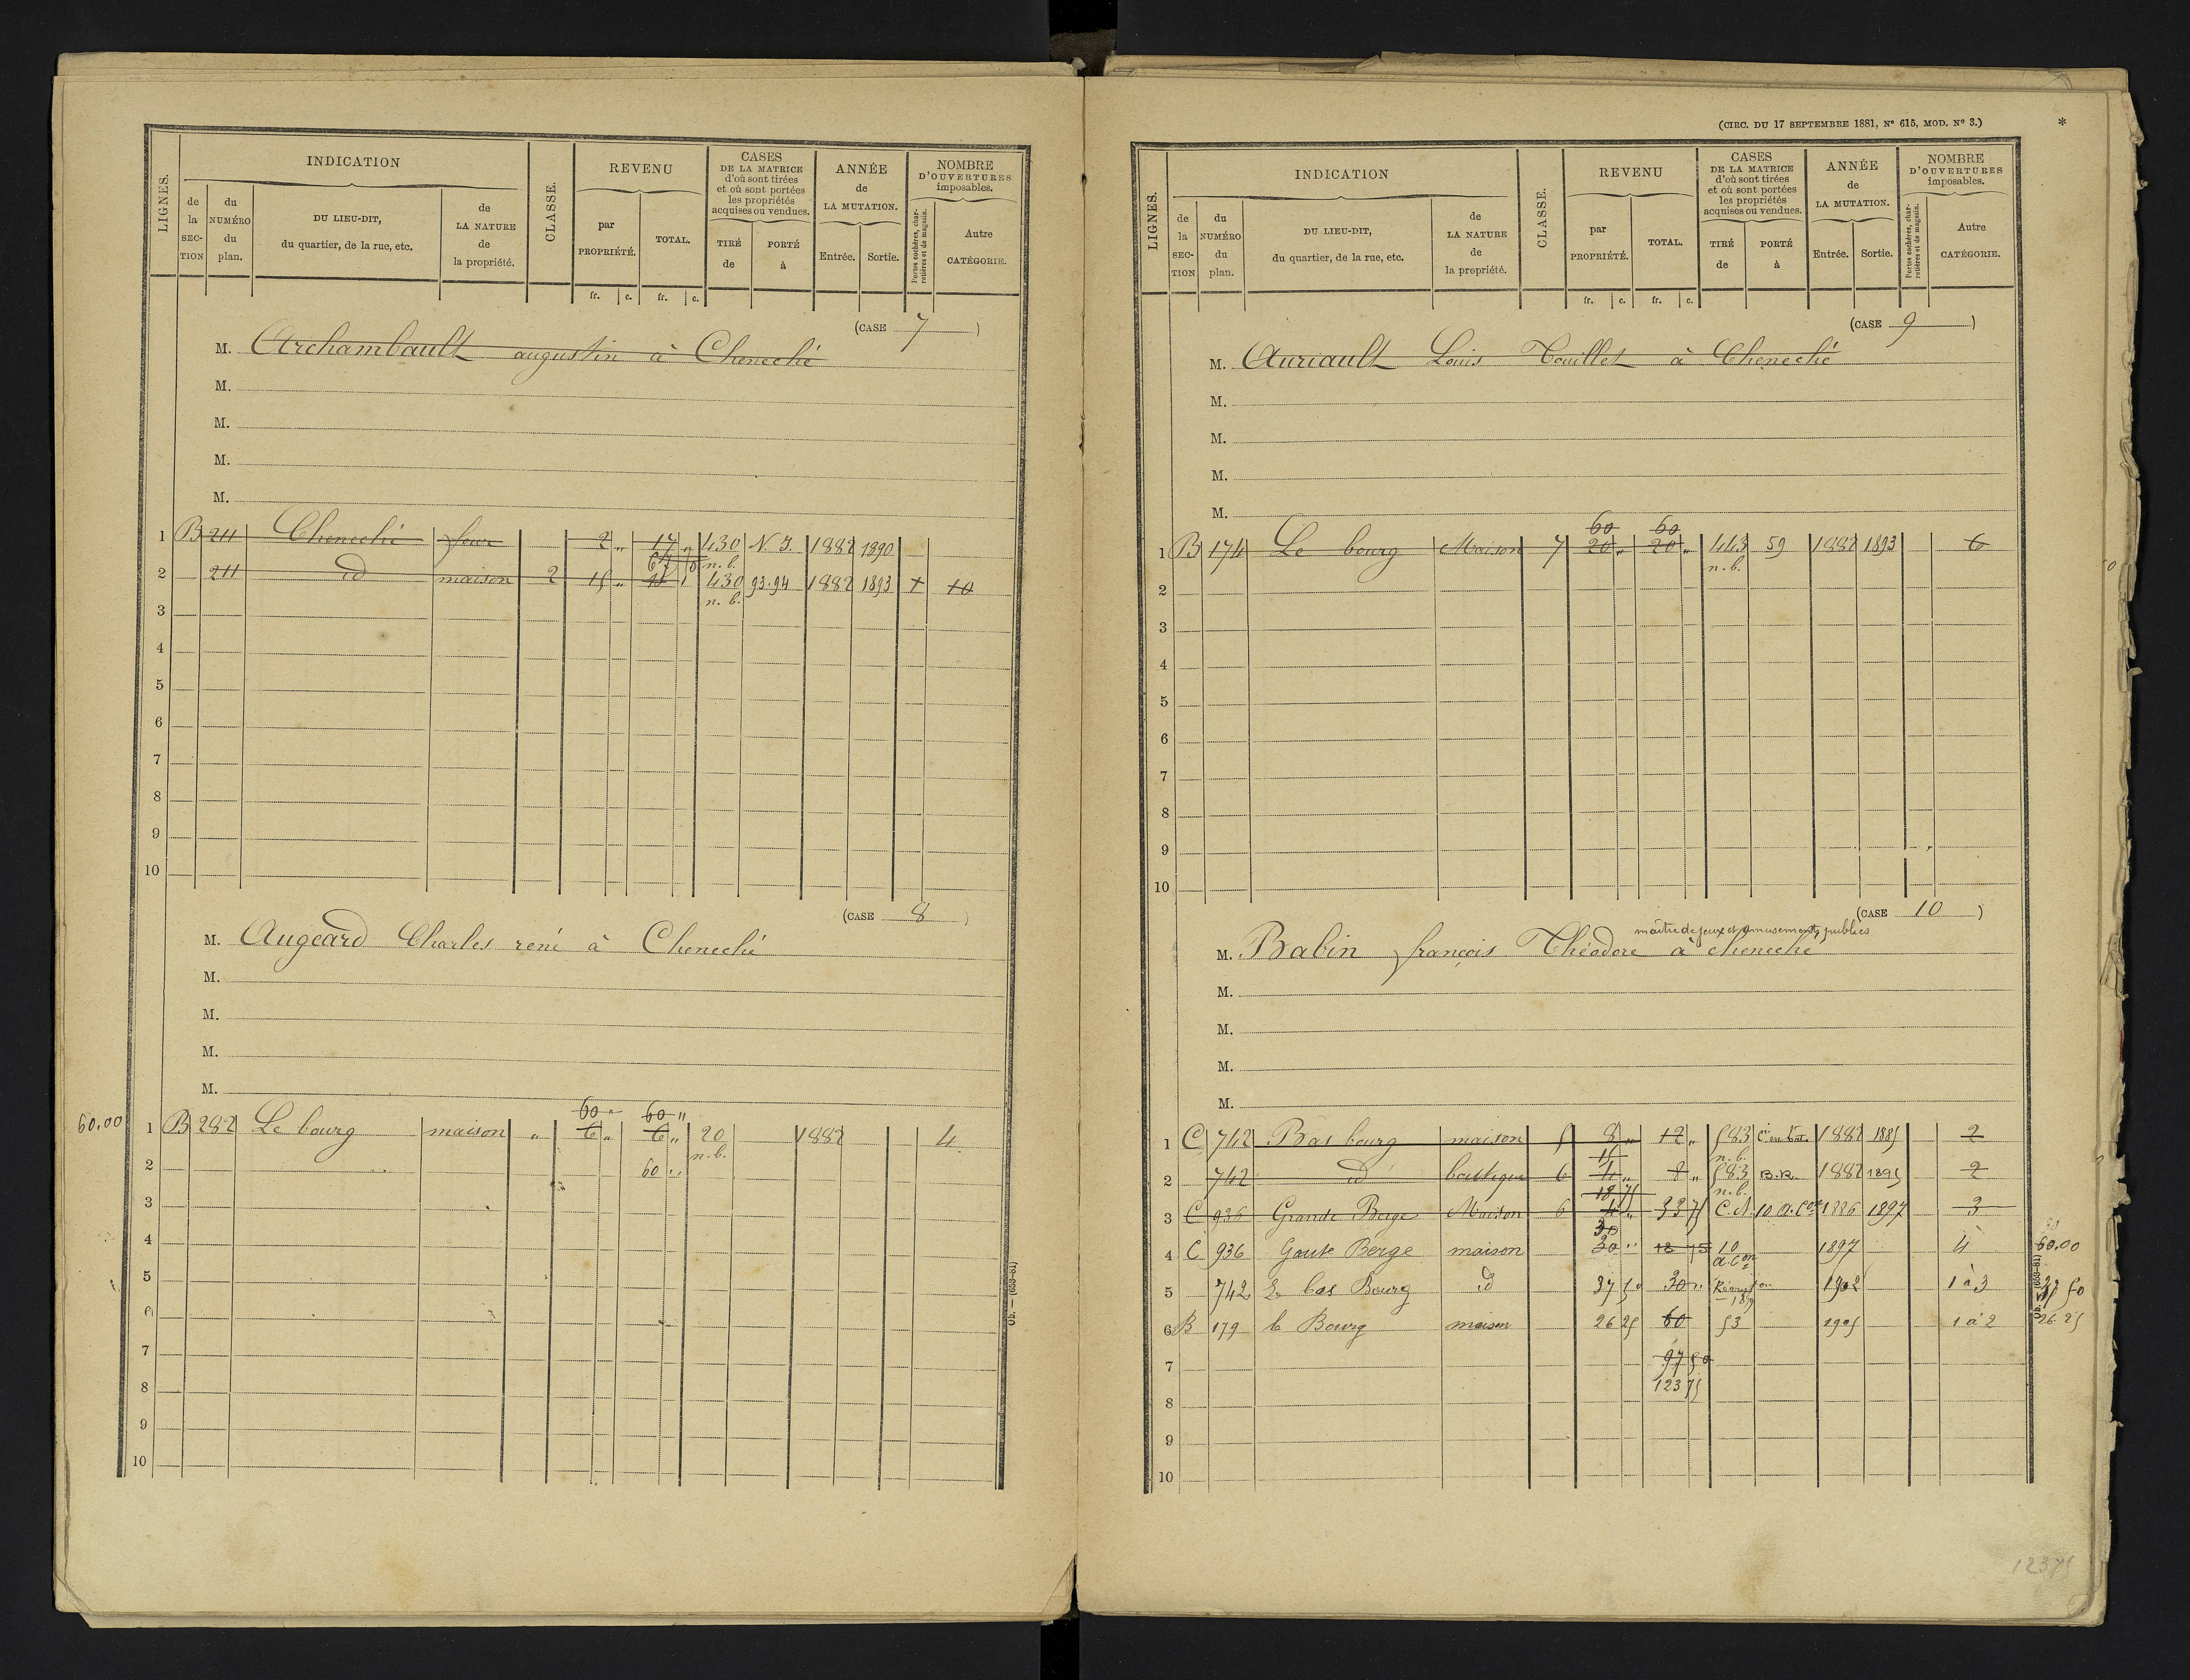 LIGNES.
INDICATION
de la SEC-TION
du NUMÉRO du plan.
DU LIEU-DIT, du quartier, de la rue, etc.
de LA NATURE de la propriété.
CLASSE.
REVENU
par PROPRIÉTÉ.
TOTAL.
fr. c. fr. c.
CASES DE LA MATRICE d'où sont tirées et où sont portées les propriétés acquises ou vendues.
TIRÉ de
PORTÉ à
ANNÉE de LA MUTATION.
Entrée. Sortie.
NOMBRE D'OUVERTURES imposables.
Portes cochères, charretières et de magasin.
Autre CATÉGORIE.
(CASE 7)
M. Archambault augustin à Cheneché
M.
M.
M.
M.
1 B 211 Cheneché four 2 " 17 " 430 N.I. 1882 1890
n. b.
2 211 id maison 2 15 " 430 93.94 1882 1893 + 10
n. b.
3
4
5
6
7
8
9
10
(CASE 8)
M. Augeard Charles rené à Cheneché
M.
M.
M.
M.
60 " 60 "
60.00 1 B 282 Le bourg maison " 6 " 6 " 20 1882 4
n. b.
2 60 "
3
4
5
6
7
8
9
10
Ob. — (653-81)
(CIRC. DU 17 SEPTEMBRE 1881, N° 615, MOD. N° 3.)
*
LIGNES.
INDICATION
de la SEC-TION
du NUMÉRO du plan.
DU LIEU-DIT, du quartier, de la rue, etc.
de LA NATURE de la propriété.
CLASSE.
REVENU
par PROPRIÉTÉ.
TOTAL.
fr. c. fr. c.
CASES DE LA MATRICE d'où sont tirées et où sont portées les propriétés acquises ou vendues.
TIRÉ de
PORTÉ à
ANNÉE de LA MUTATION.
Entrée. Sortie.
NOMBRE D'OUVERTURES imposables.
Portes cochères, charretières et de magasin.
Autre CATÉGORIE.
(CASE 9)
M. Auriault Louis Touillet à Cheneché
M.
M.
M.
M.
60 60
1 B 174 Le bourg Maison 7 20 " 20 " 443 59 1882 1893 6
n. b.
2
3
4
5
6
7
8
9
10
(CASE 10)
maître de jeux et amusements publics
M. Babin françois Théodore à cheneché
M.
M.
M.
M.
1 C 742 Bas bourg maison 5 8 " 12 " 583 1882 1885 2
15 n. b.
2 742 id boutique 6 4 " 8 " 583 B.R. 1882 1895 2
18 75 n. b.
3 C 936 Grande Berge Maison 6 4 " 33 75 C.N. 10 a. Con 1886 1897 3
30
4 C 936 Goute Berge maison 30 " 18 75 10 a. Con 1897 4 60.00
5 742 Le bas Bourg id 37 50 30 " 1902 1 à 3 37 50
6 B 179 le Bourg maison 26 25 60 53 1905 1 à 2 26 25
7 97 50
123 75
8
9
10
Ob. — (653-81)
12375